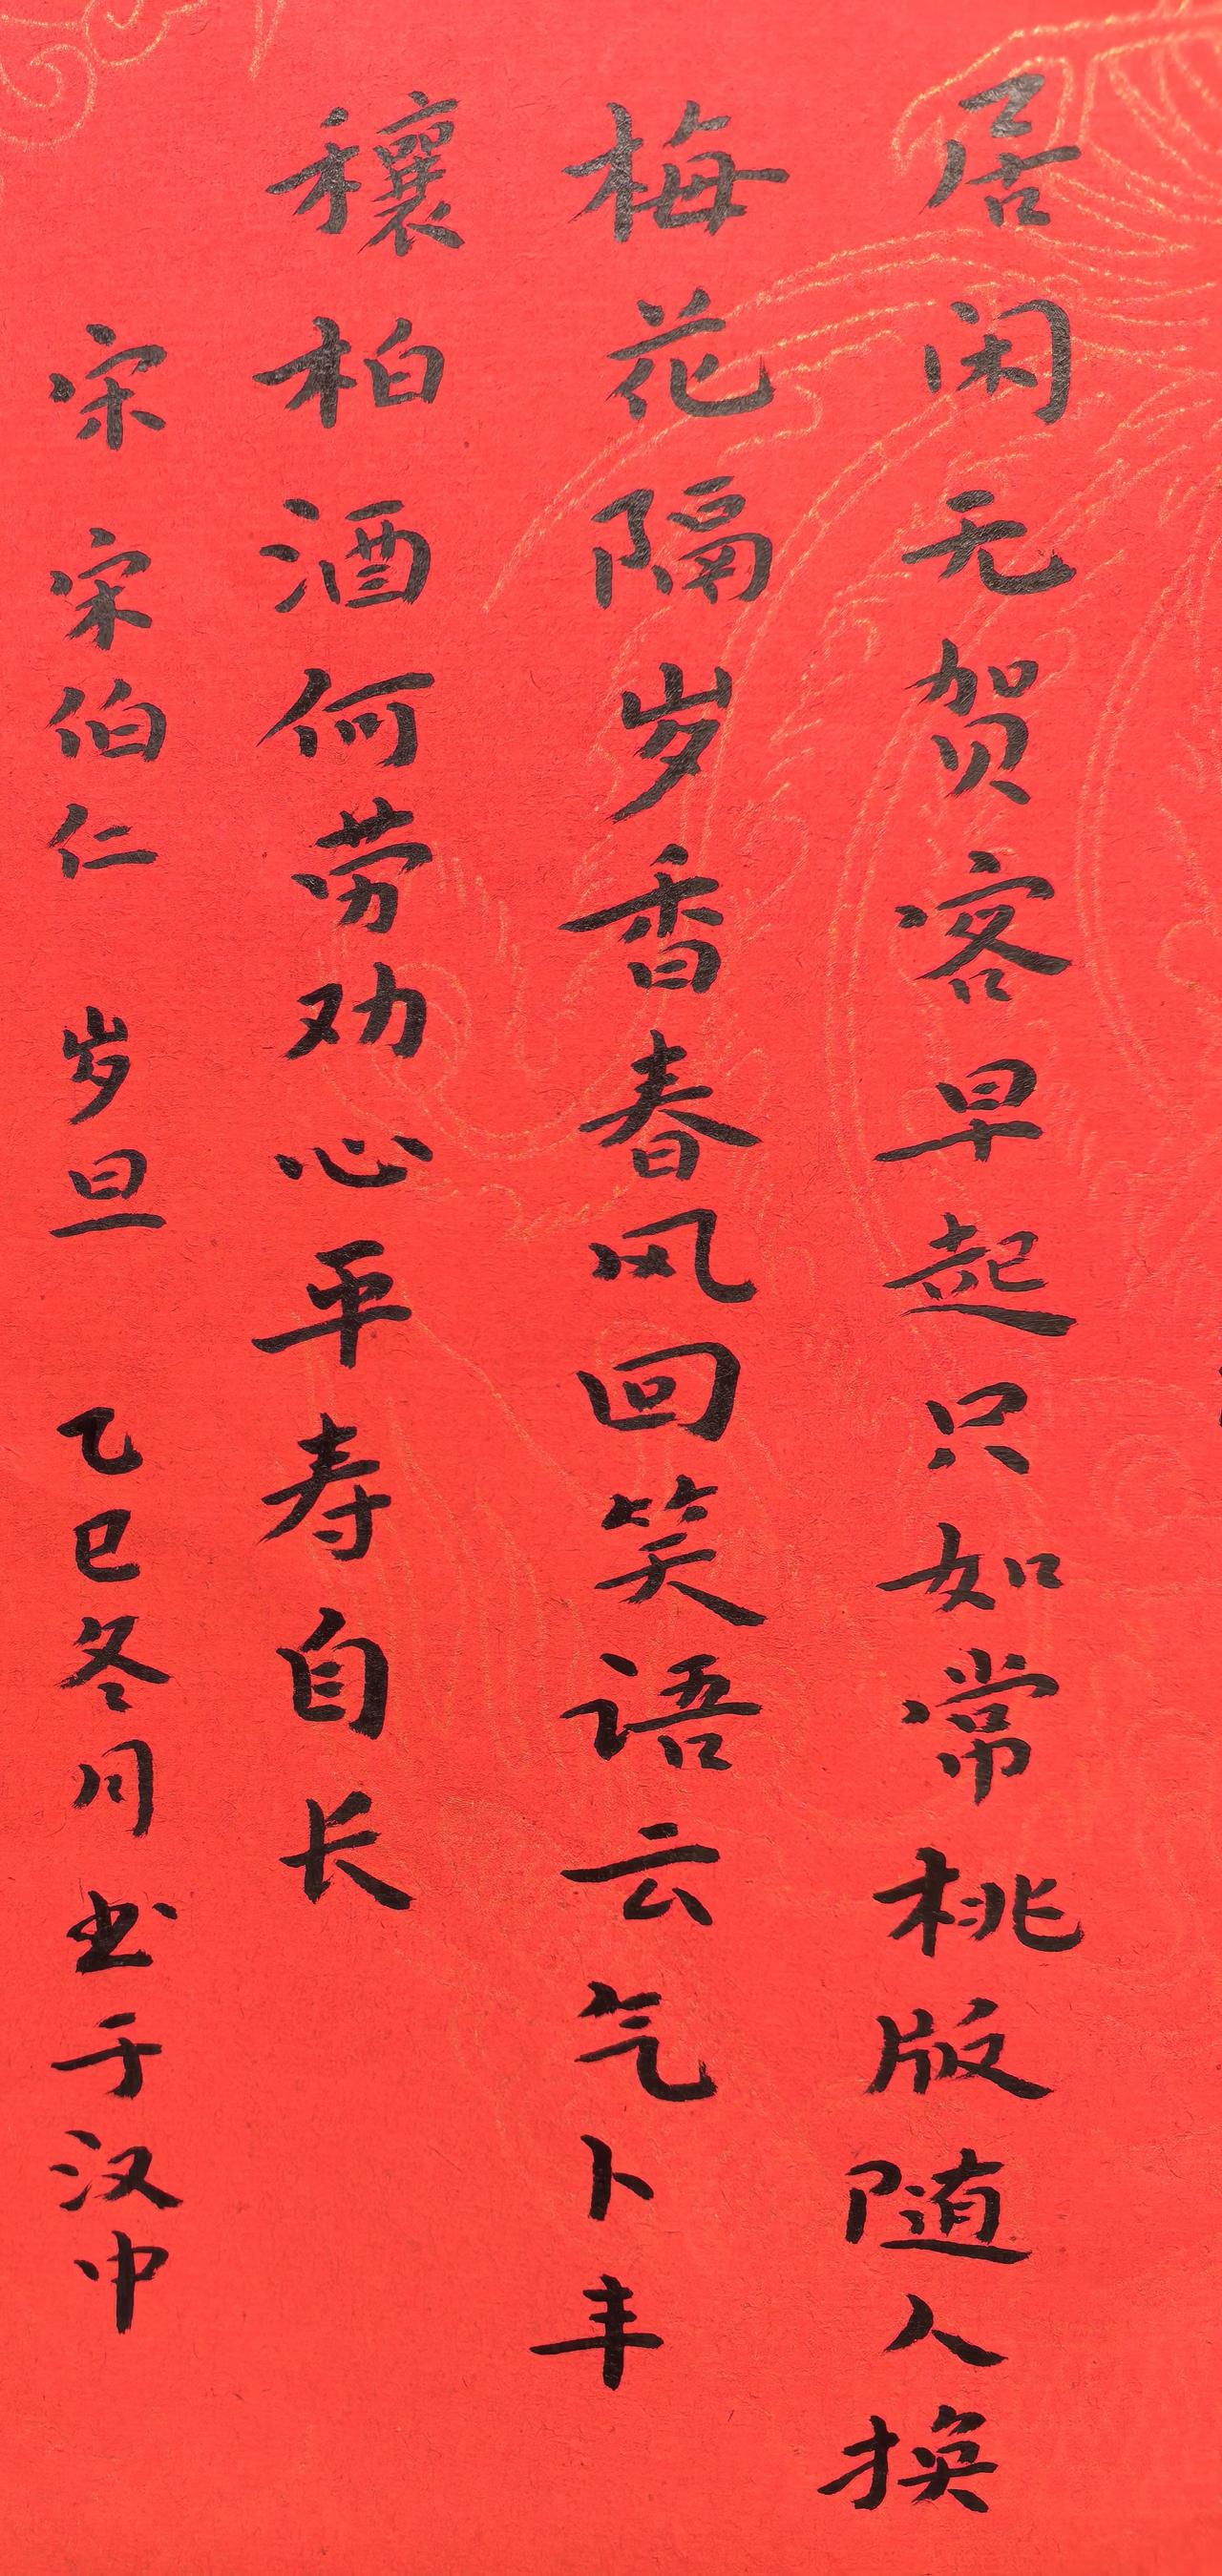 居闲无贺客早起只如常桃版随人换
梅花隔岁香春风回笑语云气卜丰
穰柏酒何劳劝心平寿自长
宋 宋伯仁 岁旦 乙巳冬月书于汉中